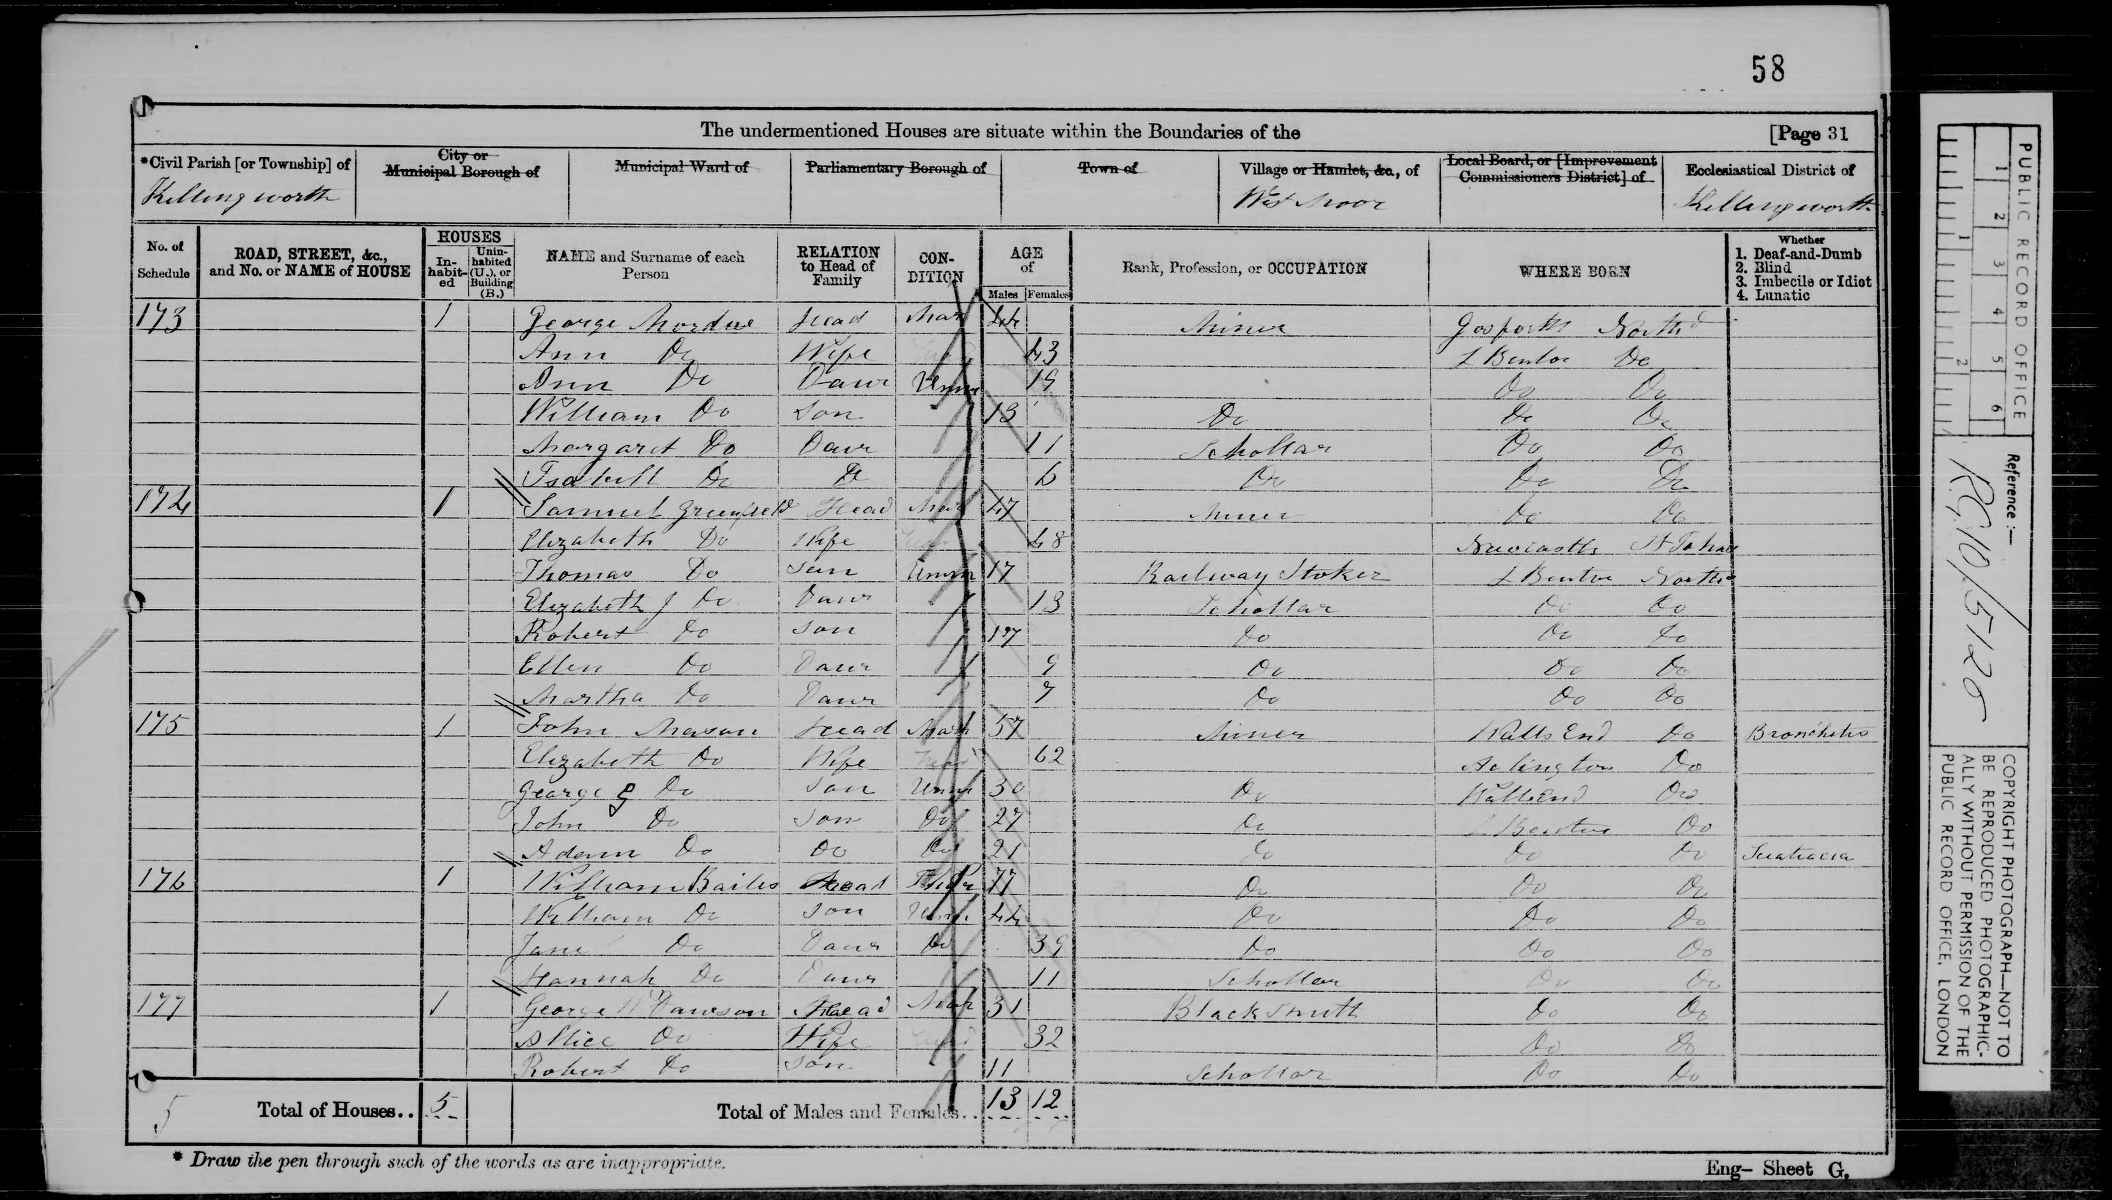 58
The undermentioned Houses are situate within the Boundaries of the [Page 31
*Civil Parish [or Township] of City or Municipal Borough of Municipal Ward of Parliamentary Borough of Town of Village or Hamlet, &c., of Local Board, or [Improvement Commissioners District] of Ecclesiastical District of
Killingworth West Moor Killingworth
No. of Schedule ROAD, STREET, &c., and No. or NAME of HOUSE HOUSES In-habit-ed Unin-habited (U.), or Building (B.) NAME and Surname of each Person RELATION to Head of Family CON-DITION AGE of Males Females Rank, Profession, or OCCUPATION WHERE BORN Whether 1. Deaf-and-Dumb 2. Blind 3. Imbecile or Idiot 4. Lunatic
173 1 George Mordue Head Mar 44 Miner Gosforth North'd
Ann Do Wife 43 L Benton Do
Ann Do Daur Unm 19 Do Do
William Do Son 13 Do Do Do
Margaret Do Daur 11 Schollar Do Do
Isabell Do Do 6 Do Do Do
174 1 Samuel Greenfield Head Mar 47 Miner Do Do
Elizabeth Do Wife 48 Newcastle St Johns
Thomas Do Son Unm 17 Railway Stoker L Benton North'd
Elizabeth J Do Daur 13 Schollar Do Do
Robert Do Son Do Do Do
Ellen Do Daur 9 Do Do Do
Martha Do Daur 7 Do Do Do
175 1 John Mason Head Mar 57 Miner Walls End Do Bronchitis
Elizabeth Do Wife 62 Do
George G Do Son Unm 30 Do Walls End Do
John Do Son Do 27 Do L Benton Do
Adam Do Do Do 21 Do Do Do
176 1 William Bailes Head 77 Do Do Do
William Do Son Unm 44 Do Do Do
Jane Do Daur Do 39 Do Do Do
Hannah Do Daur 11 Schollar Do Do
177 1 George W Dawson Head Mar 31 Blacksmith Do Do
Allice Do Wife 32 Do Do
Robert Do Son 11 Schollar Do Do
5 Total of Houses.. 5 Total of Males and Females.. 13 12
* Draw the pen through such of the words as are inappropriate.
Eng- Sheet G.
PUBLIC RECORD OFFICE
1 2 3 4 5 6
1 2
Reference:-
R.G. 10/5128
COPYRIGHT PHOTOGRAPH—NOT TO
BE REPRODUCED PHOTOGRAPHIC-
ALLY WITHOUT PERMISSION OF THE
PUBLIC RECORD OFFICE, LONDON